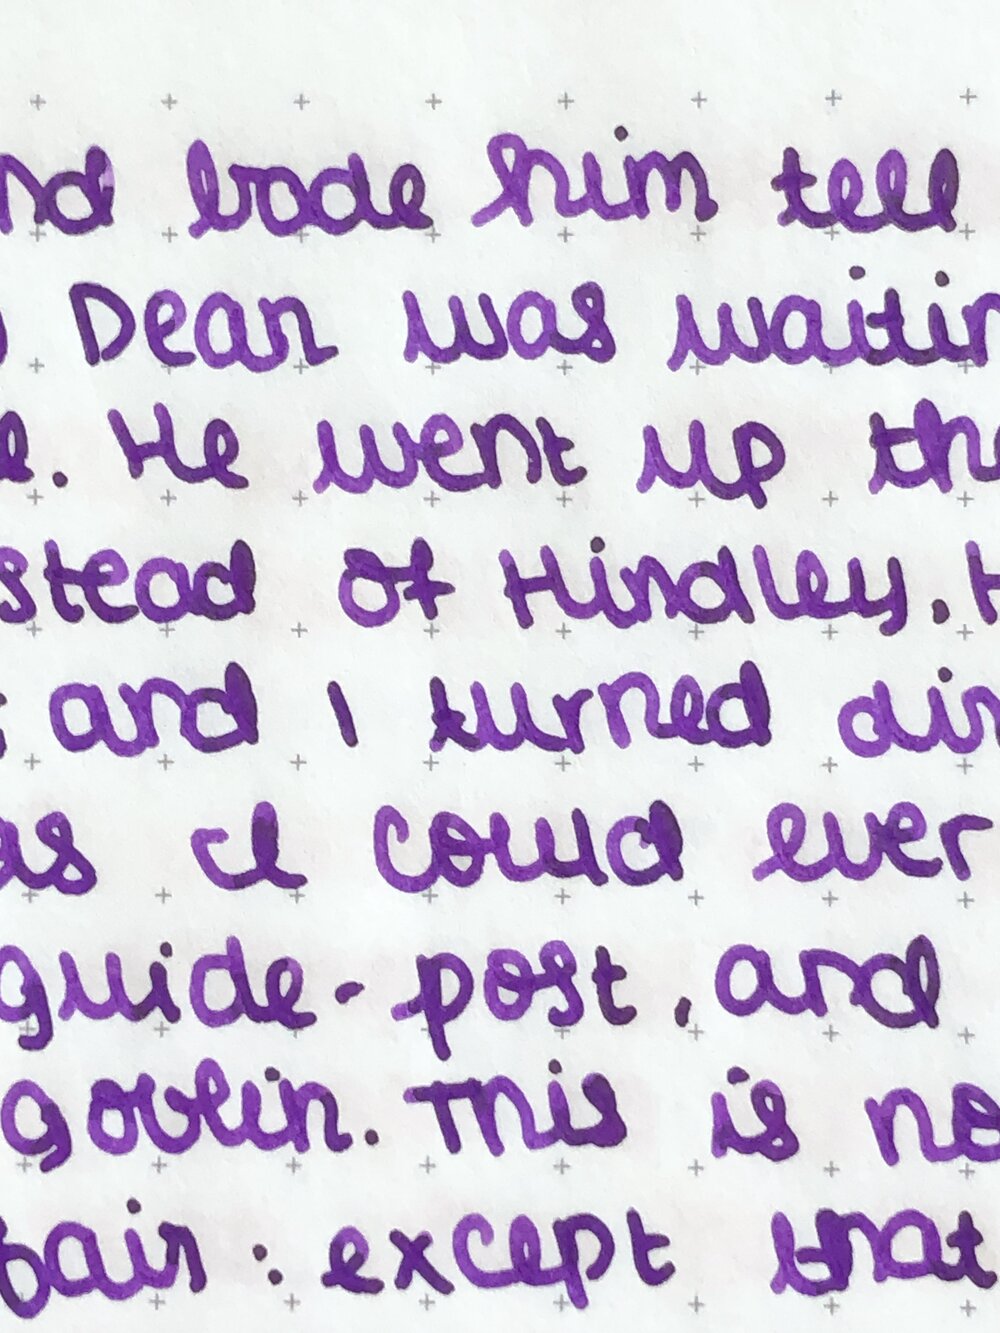 nd bade him tell
Dean was waitin
e. He went up the
stead of Hindley. H
; and I turned dir
as I could ever
guide-post, and
goblin. This is no
pair: except that